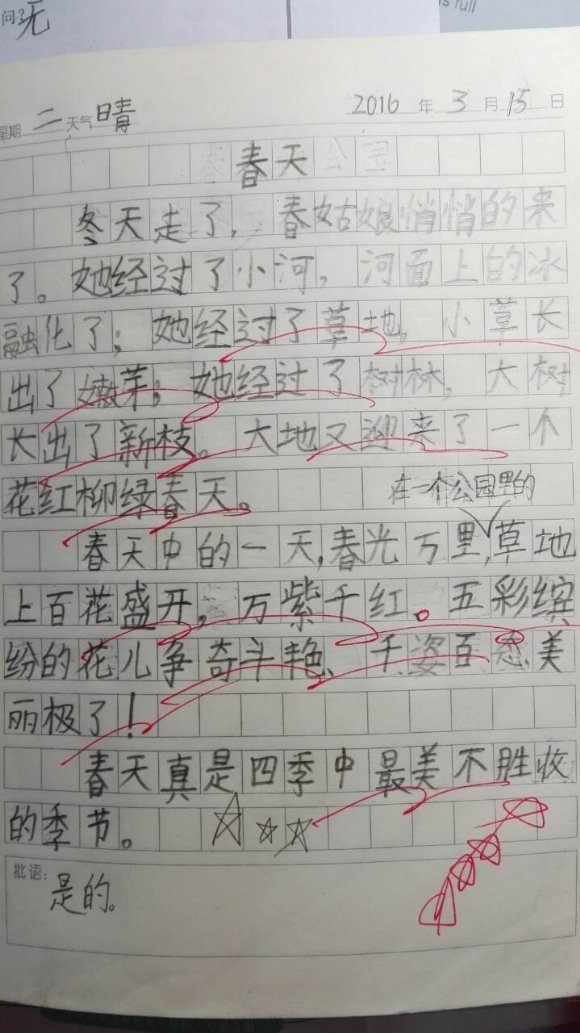 问无
s full
星期 二 天气 晴 2016 年 3 月 15 日
春天
冬天走了，春姑娘悄悄的来
了。她经过了小河，河面上的冰
融化了；她经过了草地，小草长
出了嫩芽；她经过了树林，大树
长出了新枝。大地又迎来了一个
花红柳绿春天。
在一个公园里的
春天中的一天，春光万里，草地
上百花盛开，万紫千红。五彩缤
纷的花儿争奇斗艳、千姿百态美
丽极了！
春天真是四季中最美不胜收
的季节。
批语：
是的。